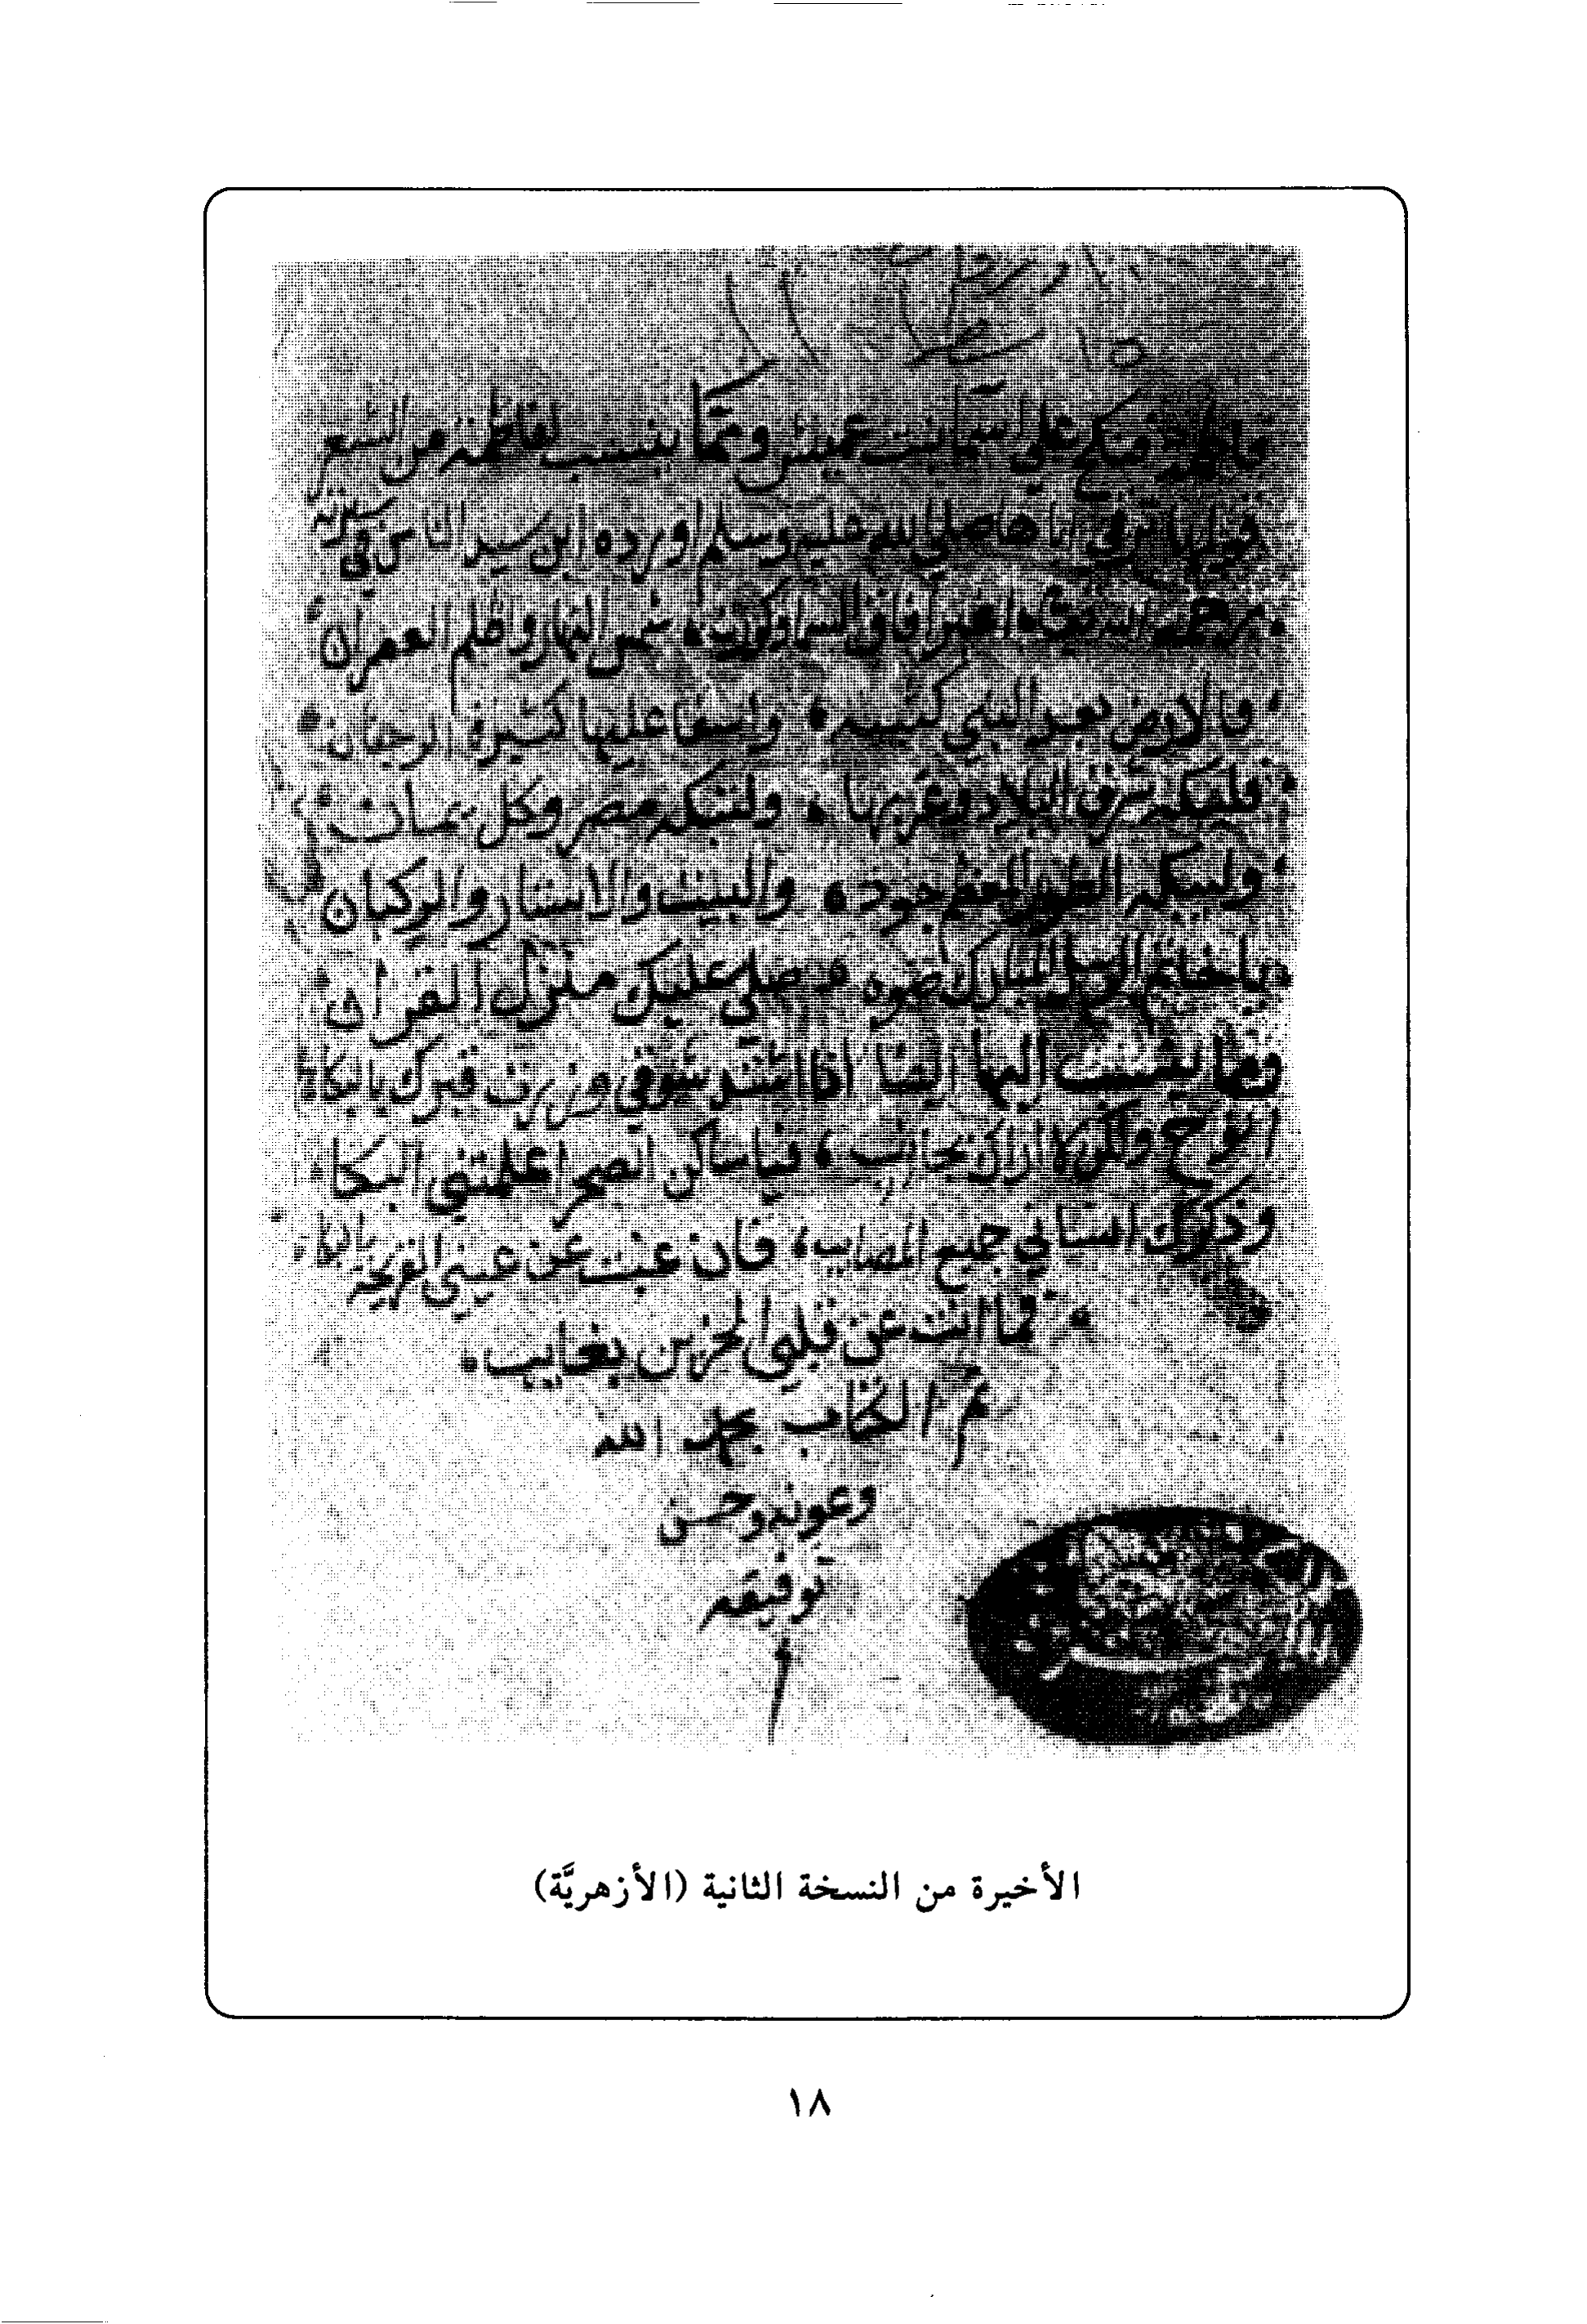 فاطمة فنكح علي اسما بنت عميس ومما ينسب لفاطمة من الشعر
قولها ترثي اباها صلى الله عليه وسلم اورده ابن سيد الناس في سيرته
اغبر آفاق السما وكورت شمس النهار واظلم العصران
والارض بعد النبي كئيبه واسفا عليها كثيرة الرجفان
فليبكه شرق البلاد وغربها ولتبكه مصر وكل يمان
وليبكه الطور المعظم جوده والبيت والاستار والركبان
يا خاتم الرسل المبارك ضوه صلى عليك منزل القران
ومما ينسب اليها ايضا اذا اشتد شوقي وزرت قبرك بالبكا
انوح ولكن لا اراك بجانب فيا ساكن الصحرا علمتني البكا
وذكرك انساني جميع المصايب فان غبت عن عيني القريحة بالبكا
فما انت عن قلبي الحزين بغايب
تم الكتاب بحمد الله
وعونه وحسن
توفيقه
الأخيرة من النسخة الثانية (الأزهريَّة)
١٨